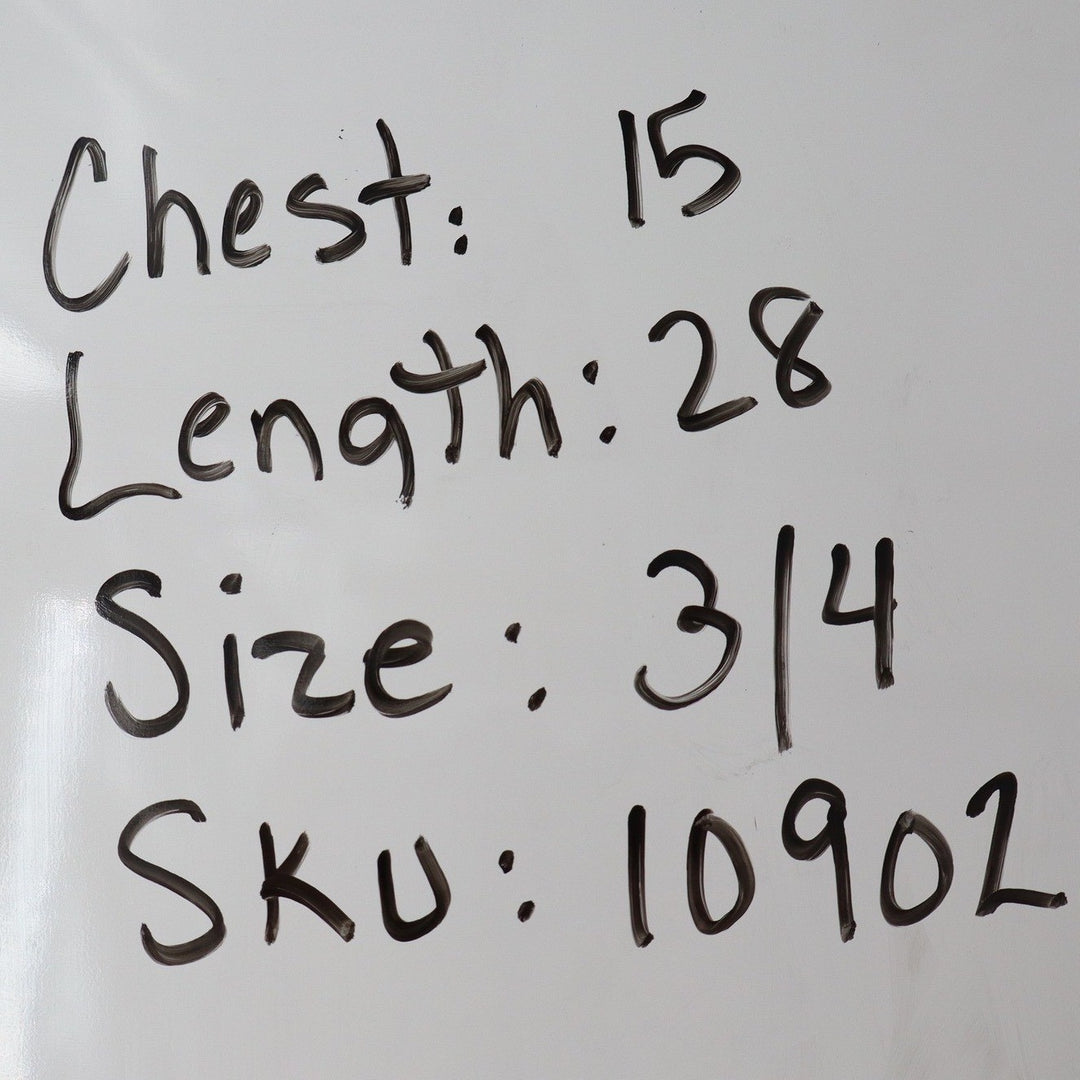 Chest: 15
Length: 28
Size: 3|4
SKU: 10902